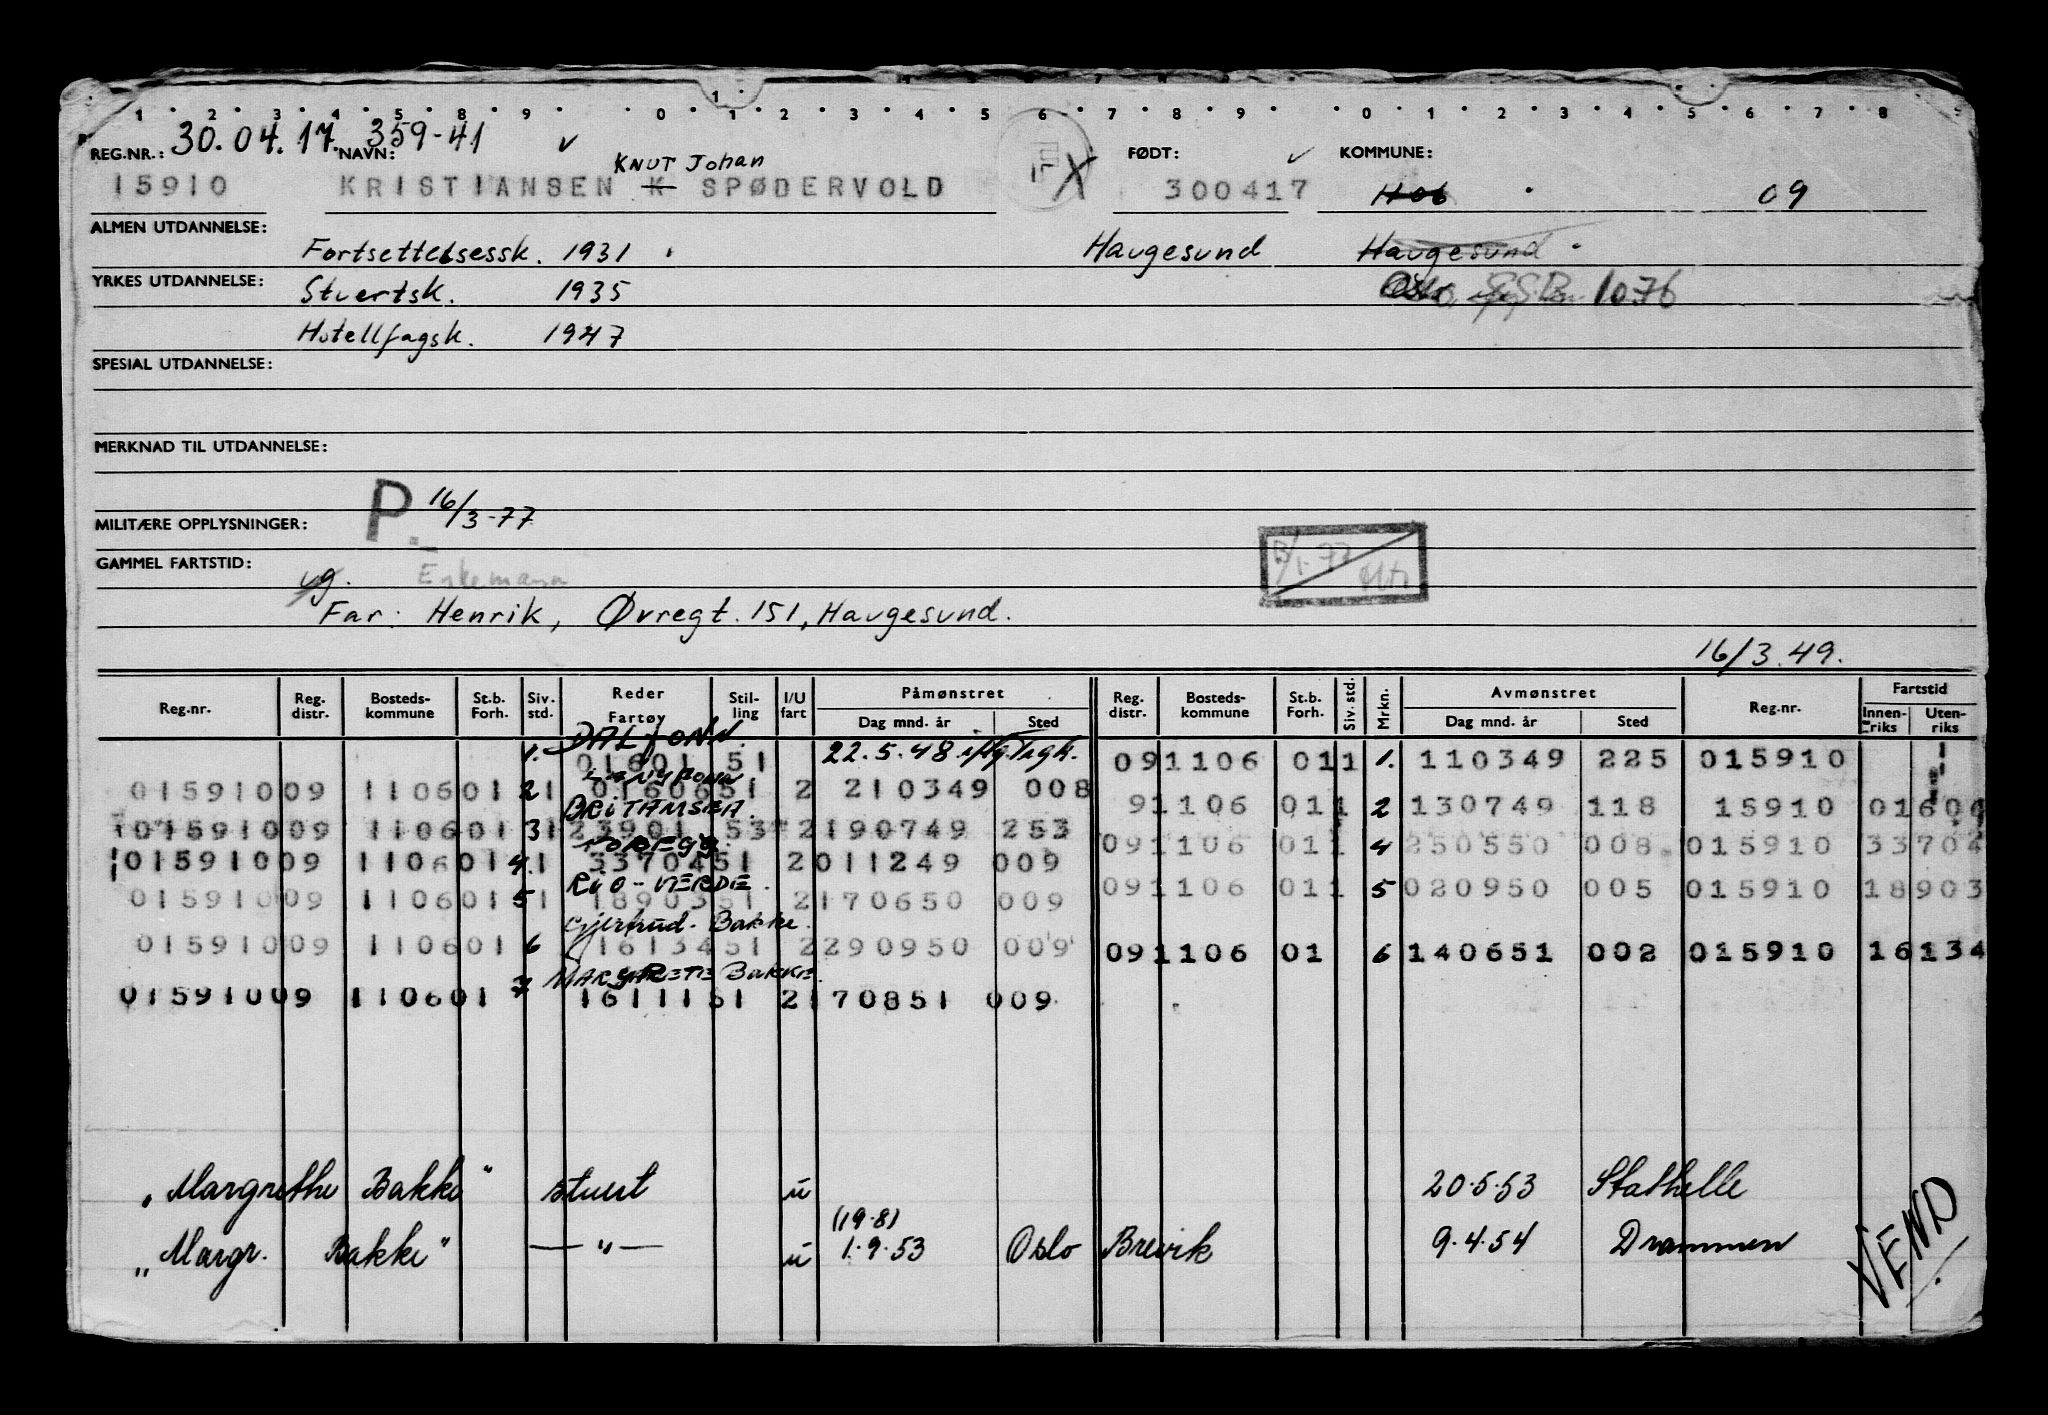 1 2 3 4 5 8 9 0 1 2 3 4 5 6 7 8 9 0 1 2 3 4 5 6 7 8 9
REG.NR.: 30.04.17. NAVN: 359-41 FØDT: KOMMUNE:
KNUT Johan
15910 KRISTIANSEN K SPØDERVOLD 300417 H06 09
ALMEN UTDANNELSE:
Fortsettelsessk. 1931 Haugesund Haugesund
YRKES UTDANNELSE: Stuertsk. 1935 Oslo 1076
Hotellfagsk. 1947
SPESIAL UTDANNELSE:
MERKNAD TIL UTDANNELSE:
MILITÆRE OPPLYSNINGER: P. 16/3-77
GAMMEL FARTSTID:
ug. Enkemann
Far: Henrik, Øvregt. 151, Haugesund.
16/3.49.
Reg.nr. Reg. distr. Bosteds-kommune St.b. Forh. Siv. std. Reder Fartøy Stil-ling I/U fart Påmønstret Dag mnd. år Sted Reg. distr. Bosteds-kommune St.b. Forh. Siv. std. Mrkn. Avmønstret Dag mnd. år Sted Reg.nr. Fartstid Innen-riks Uten-riks
DALFONN
1. 01601 51 22.5.48 091106 011 1. 110349 225 015910
015910 09 1106 01 1 2 01606 51 2 210349 008 91106 011 2 130749 118 15910 01606
BRITAMSEA.
015910 09 1106 01 1 3 23901 53 2 190749 253
TOREGG.
015910 09 1106 01 4. 1 33704 51 2 011249 009 091106 011 4 250550 008 015910 33704
RIO-VERDE.
015910 09 1106 01 5 1 18903 51 2 170650 009 091106 011 5 020950 005 015910 18903
Gjertrud-Bakke.
015910 09 1106 01 6 16134 51 2 290950 009 091106 01 6 140651 002 015910 16134
MARGRETE BAKKE.
015910 09 1106 01 7 16111 51 2 170851 009
"Margrethe Bakke" stuert u 20.5.53 Stathelle
(19.8)
"Margr. Bakke" — " — u 1.9.53 Oslo Brevik 9.4.54 Drammen
VEND.